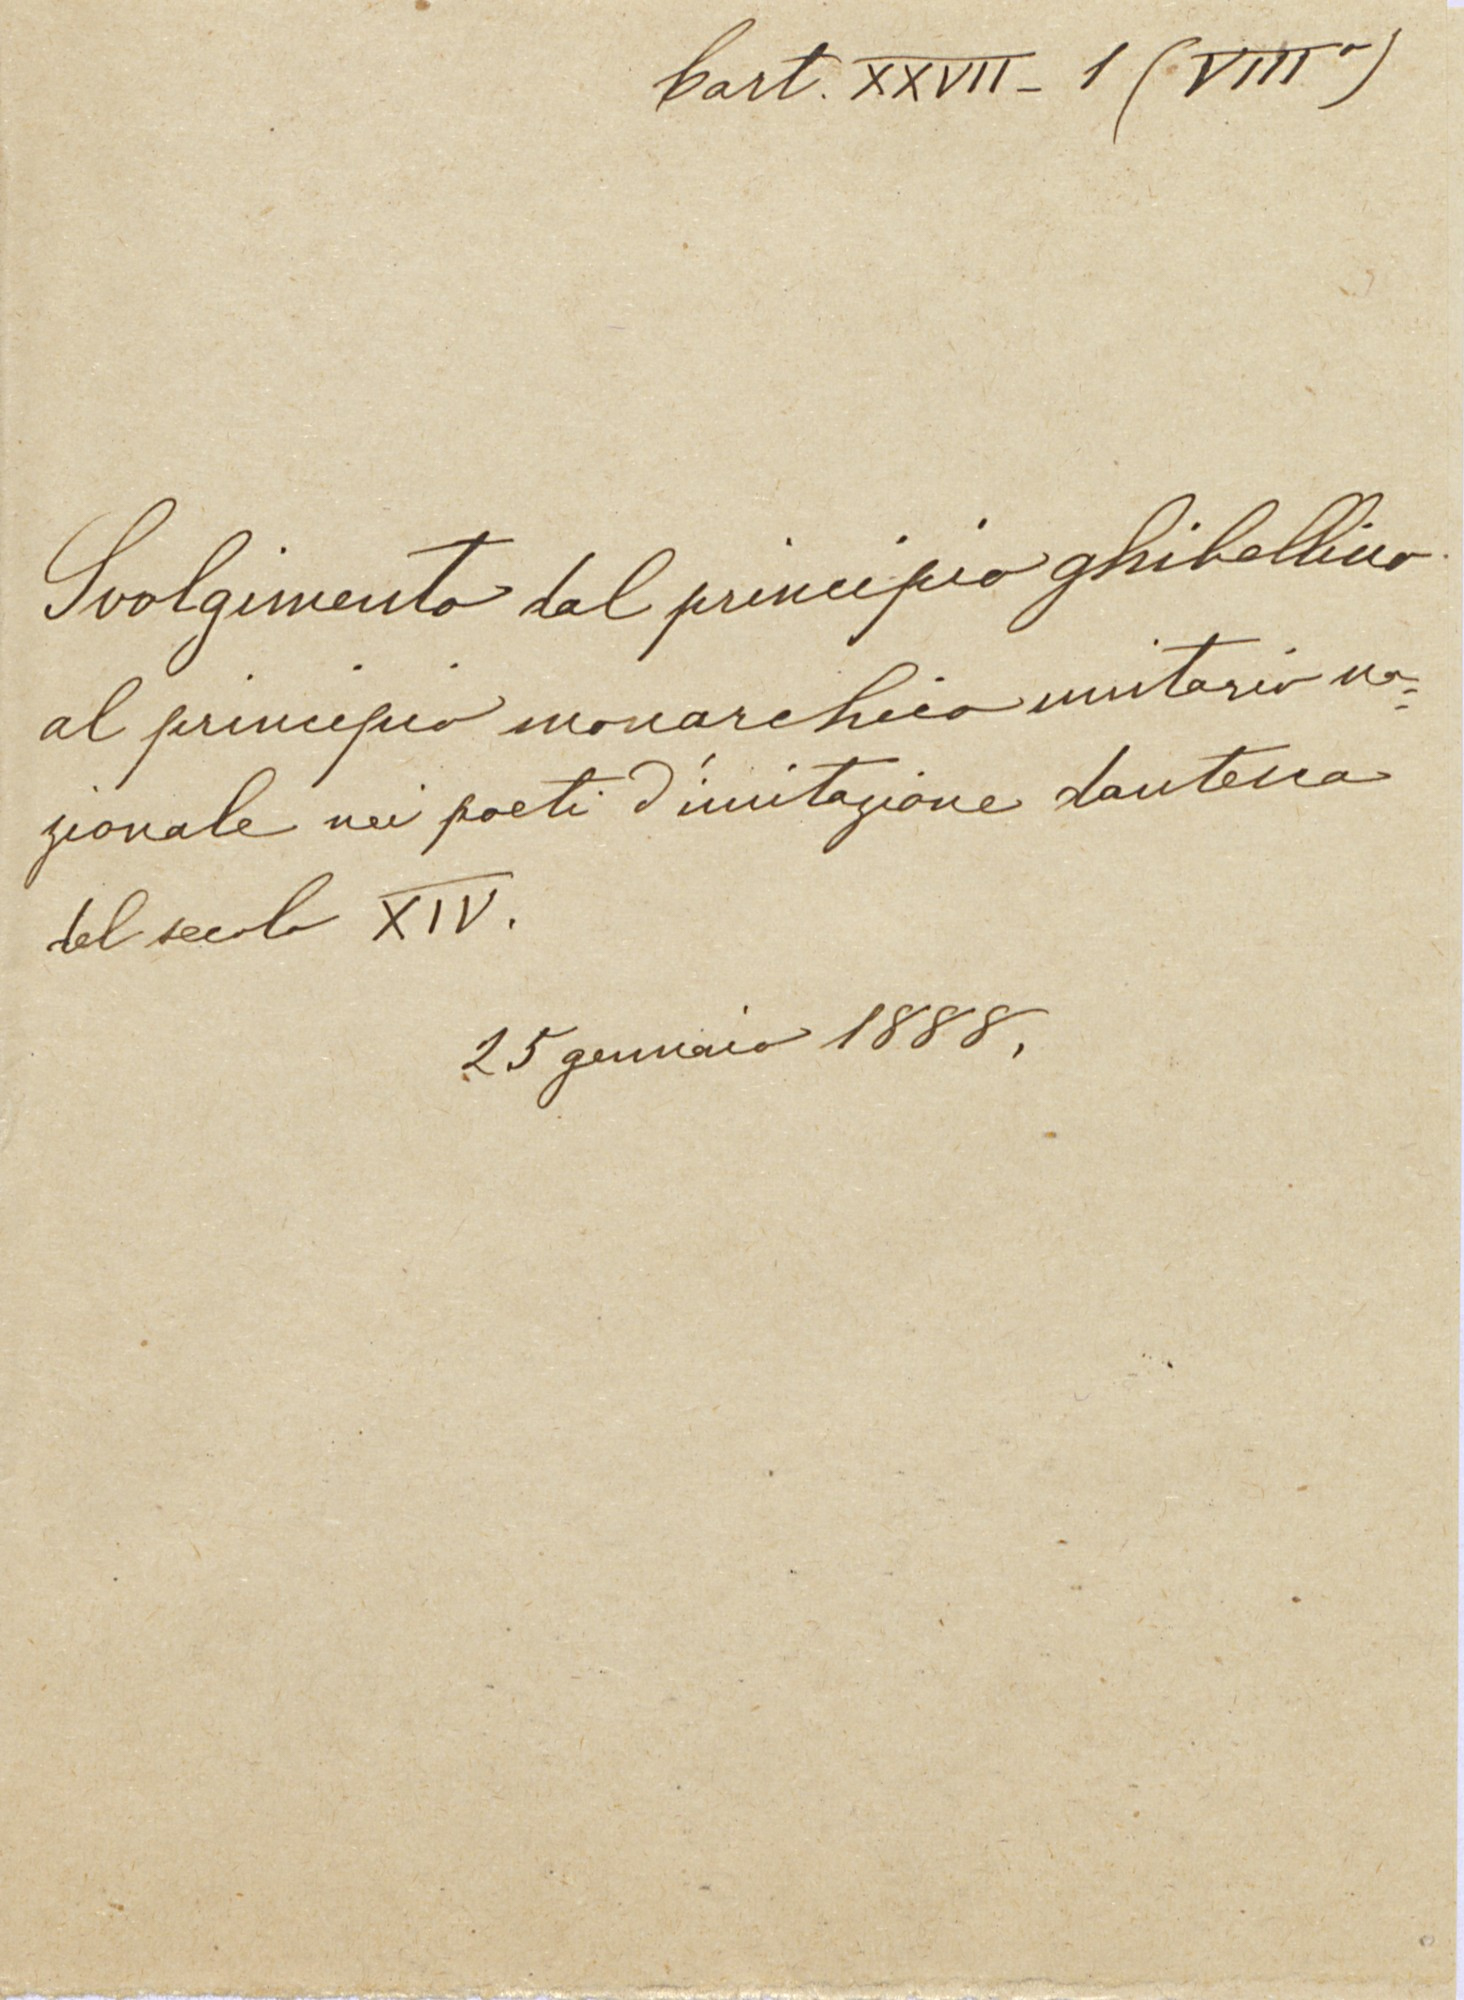 Cart. XXVII - 1 (VIIIº)
Svolgimento dal principio ghibellino
al principio monarchico unitario na=
zionale nei poeti d'imitazione dantesca
del secolo XIV.
25 gennaio 1888.